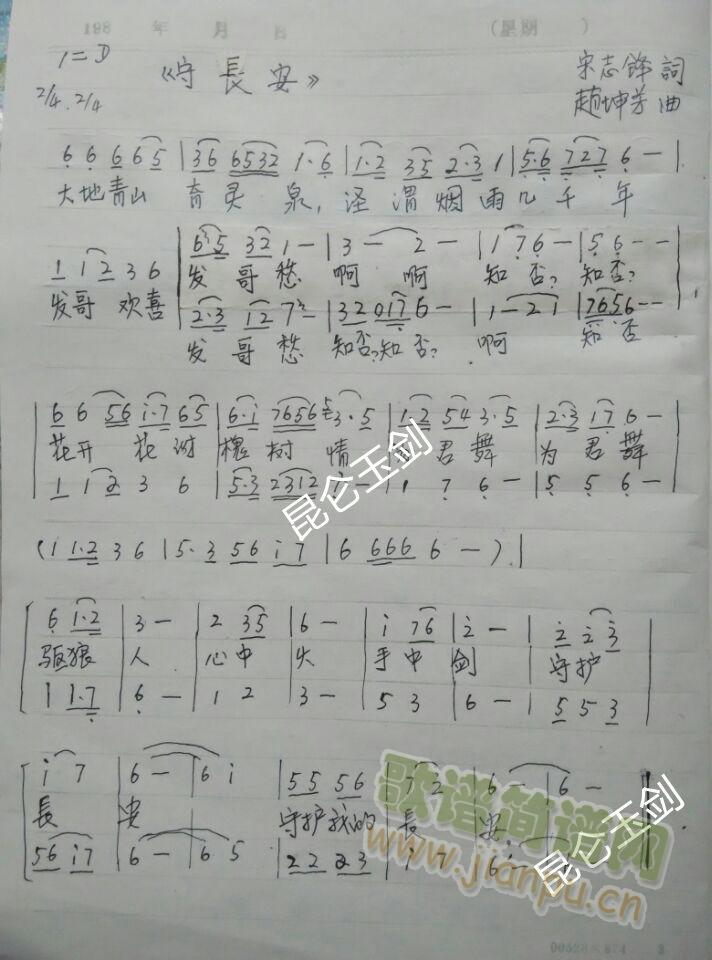 198 年 月 日 (星期 )
1=D
《守長安》
宋志锋詞
2/4.2/4
趙坤芳曲
6 6 6 6 5 | 3 6 6 5 3 2 1·6 | 1·2 3 5 2·3 1 | 5·6 7 2 7 6 — |
大地青山 育灵泉,泾渭烟雨几千年
6 5 3 2 1 — | 3 — 2 — | 1 7 6 — | 5 6 — —
1 1 2 3 6
发哥愁 啊 啊 知否?知否?
发哥欢喜
2·3 1 2 7 | 3 2 0 1 7 6 — | 1 — 2 1 | 7 6 5 6 — —
发哥愁 知否?知否? 啊 知否
| 6 6 5 6 i·7 6 5 | 6·i 7 6 5 6 3·5 | 1·2 5 4 3·5 | 2·3 1 7 6 — |
花开花谢槐树情 君舞 为君舞
1 1 2 3 6 | 5·3 2 3 1 2 | 1 7 6 — | 5 5 6 — |
(1 1·2 3 6 | 5·3 5 6 i 7 | 6 6 6 6 6 — ) |
6 1·2 | 3 — | 2 3 5 | 6 — | i 7 6 | 2 — | 2 2 3
驱狼人 心中火 手中剑 守护
1 1·7 | 6 — | 1 2 | 3 — | 5 3 | 6 — | 5 5 3
i 7 | 6 — | 6 i | 5 5 5 6 | 7 2 | 6 — | 6 —
長安 守护我的長安
5 6 i 7 | 6 — | 6 5 | 2 2 2 3
昆仑玉剑
昆仑玉剑
歌谱简谱网
www.jianpu.cn